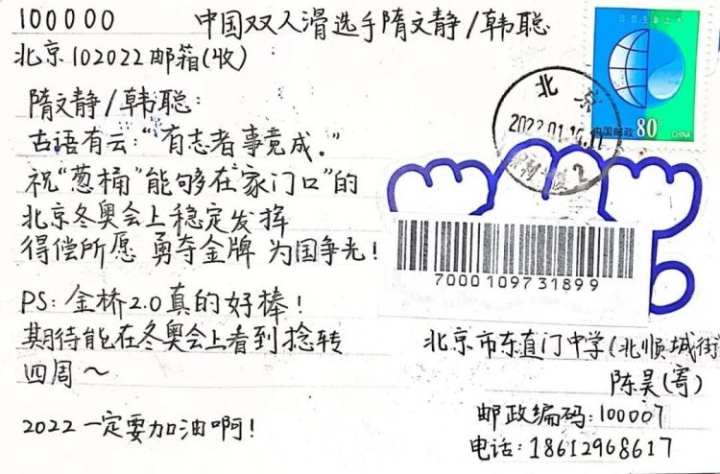 100000
中国双人滑选手隋文静/韩聪
北京102022邮箱(收)
隋文静/韩聪:
古语有云:"有志者事竟成."
祝"葱桶"能够在"家门口"的
北京冬奥会上稳定发挥
得偿所愿 勇夺金牌 为国争光!
PS:金桥2.0真的好棒!
期待能在冬奥会上看到捻转
四周~
2022一定要加油啊!
中国邮政 80 CHINA
北京
2022.01.10.17
2
7000109731899
北京市东直门中学(北顺城街
陈昊(寄)
邮政编码:100007
电话:18612968617